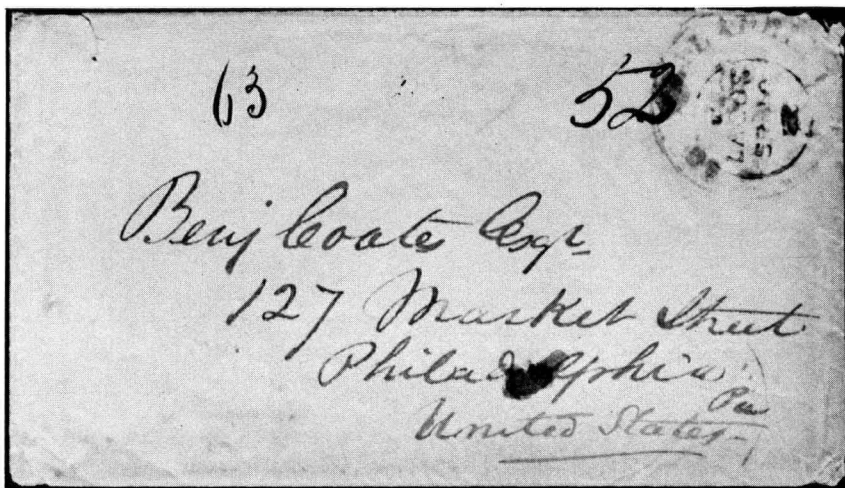 63 52
Benj Coates Esqr
127 Market Street
Philadelphia
Pa
United States